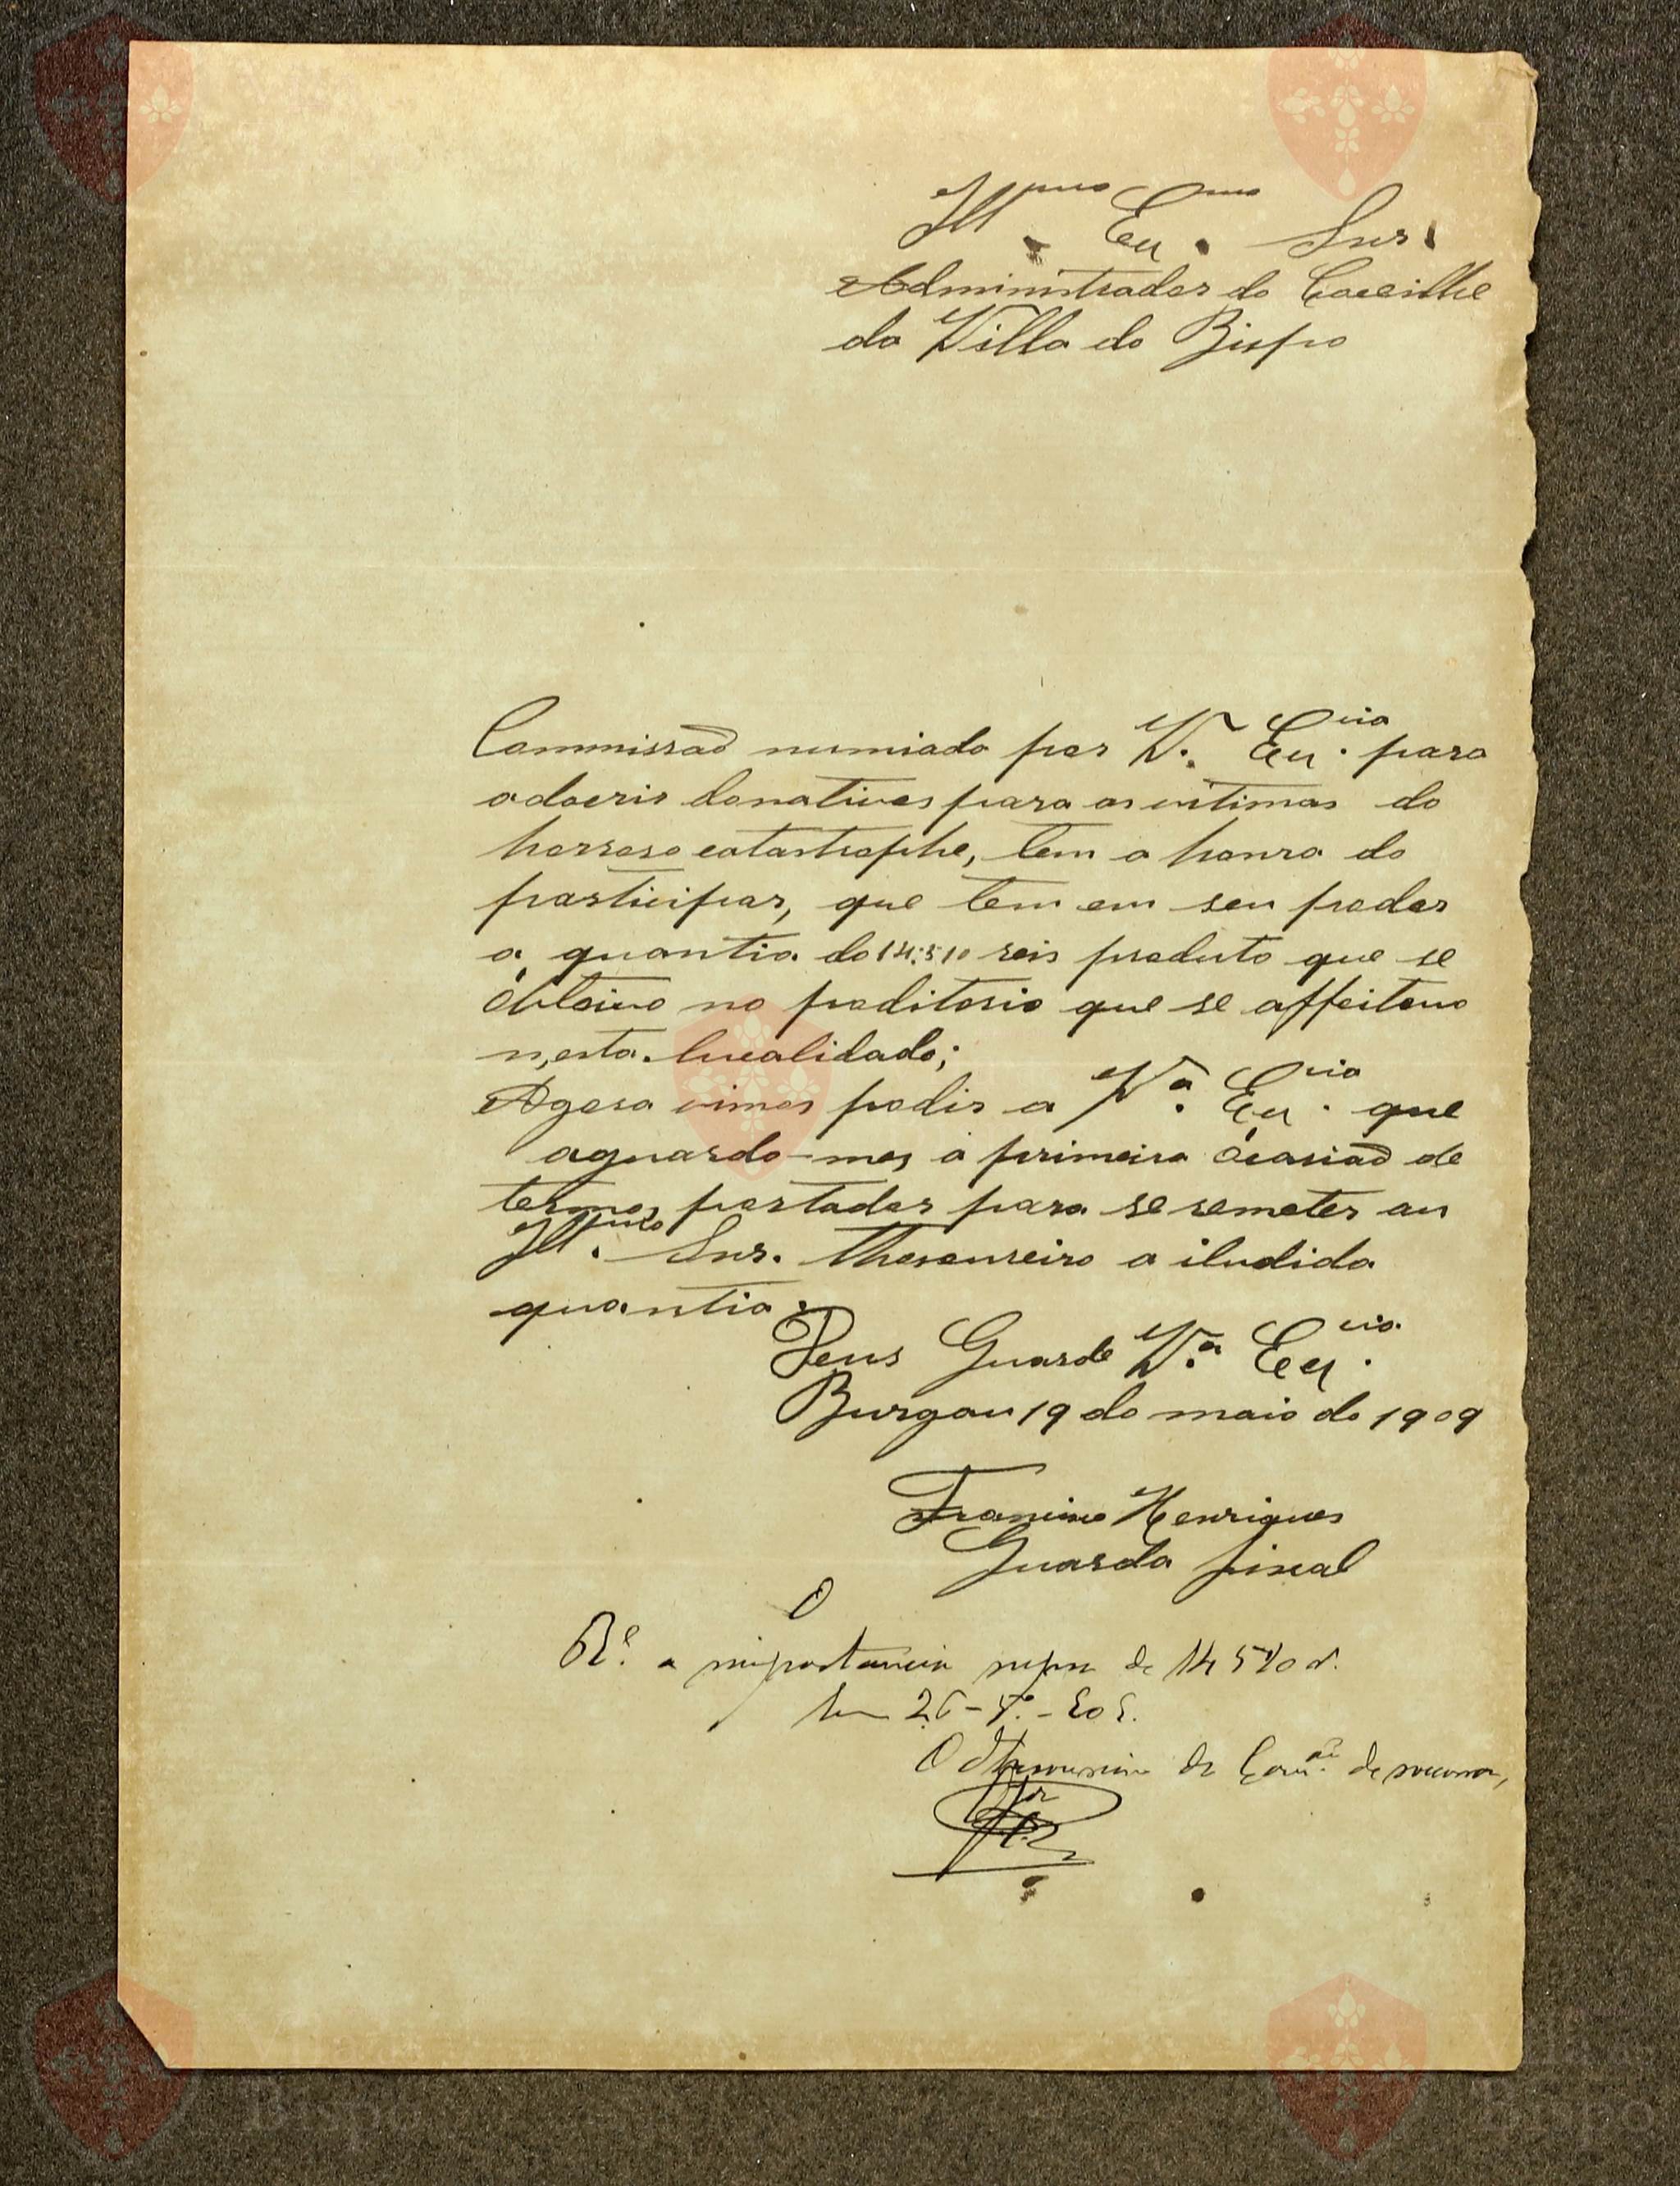 Illmo. Exmo. Snr.
Administrador do Concilhe
da Villa do Bispo
Commissão numiada por Va. Excia. para
adqerir donativos para as vitimas do
horroso catastrophe, tem a honra do
participar, que tem em seu poder
a quantia do 14:510 reis produto que se
óbteivo no peditorio que se affeitouo
n,esta localidade;
Agora vimos pedir a Va. Excia. que
aguarda-mos a primeira ócasiaõ de
termos portador para se remeter au
Illmo. Snr. Thesoureiro a iludida
quantia.
Deus Guarde Va. Excia.
Burgau 19 do maio do 1909
Francisco Henriques
Guarda fiscal
Re. a importancia supra de 14 510 rs.
Em 26-5.º-909.
O Thesoureiro da Comão. de socorros,